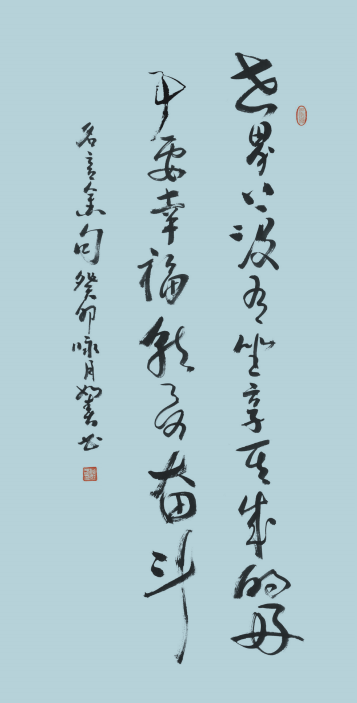 世界上没有坐享其成的好
事要幸福就要奋斗
名言金句癸卯咏月如春书